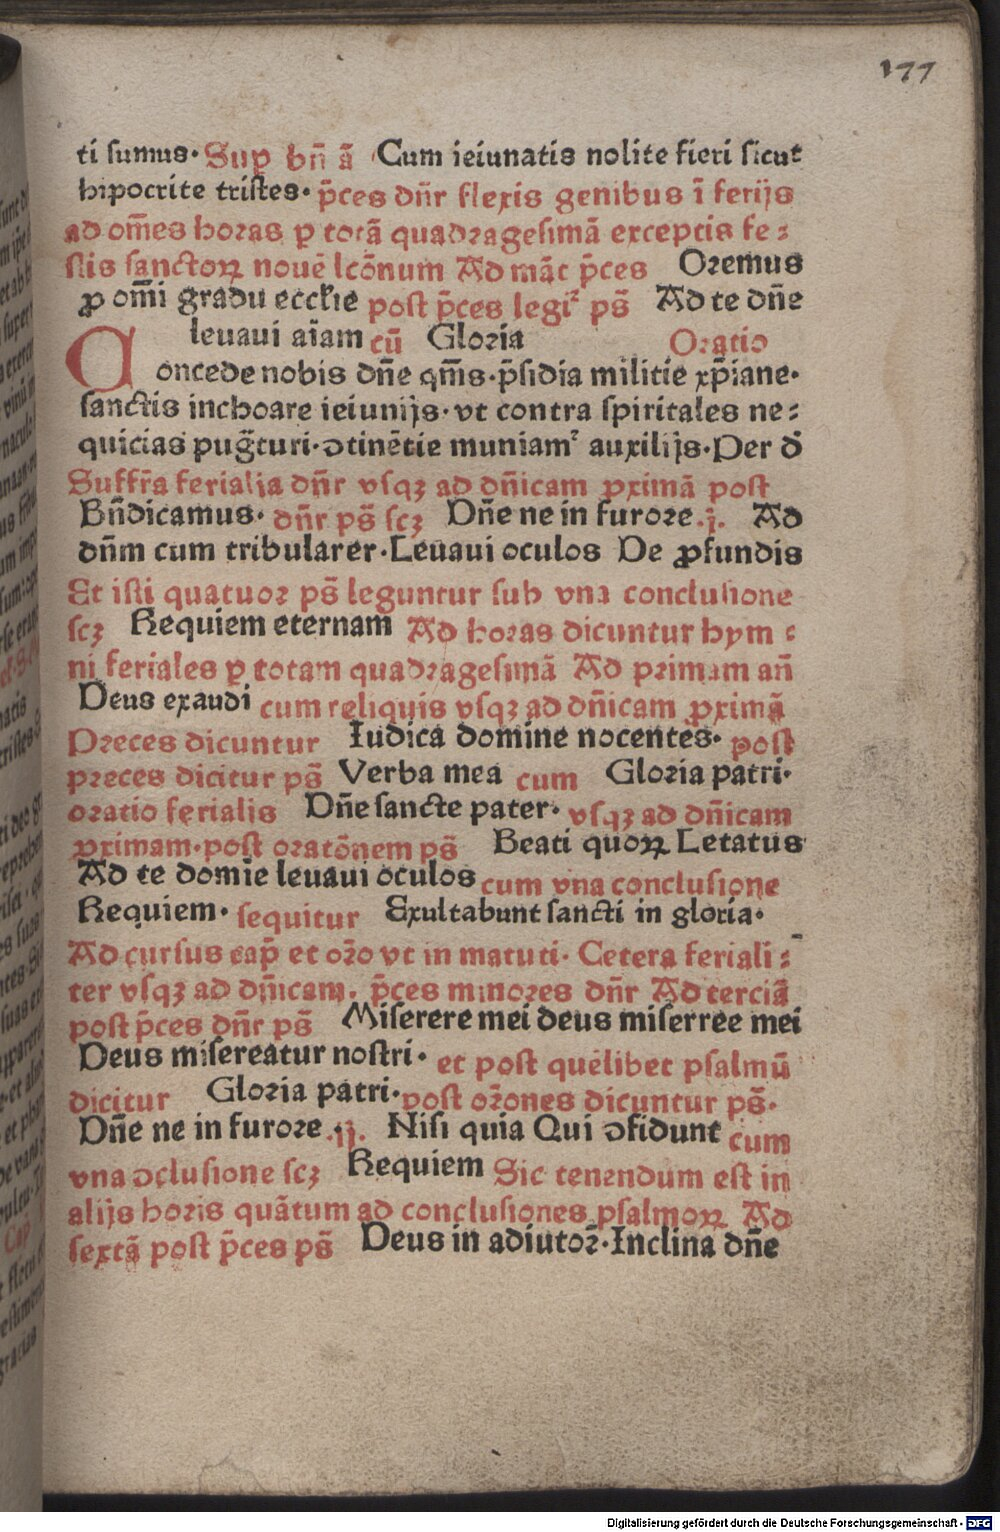 177
ti sumus· Sup̲ bn̄ ā Cum ieiunatis nolite fieri sicut
hipocrite tristes· p̄ces dn̄r flexis genibus ī ferijs
ad om̄es horas ꝑ totā quadragesimā exceptis fe⸗
stis sanctoꝝ nouē lcōnum Ad māt p̄ces Oremus
ꝓ om̄i gradu ecclꝭie post p̄ces legiᷣ ps̄ Ad te dn̄e
leuaui aīam cū Gloria Oratio
Concede nobis dn̄e qm̄s·p̄sidia militie xp̄iane·
sanctis inchoare ieiunijs·vt contra spiritales ne⸗
quicias pugᷓturi·ↄtinētie muniamᷣ auxilijs·Per d̄
Suffr̄a ferialia dn̄r vsqꝫ ad dn̄icam ꝓximā post
Bn̄dicamus· dn̄r ps̄ scꝫ Dn̄e ne in furore.j. Ad
dn̄m cum tribularer·Leuaui oculos De ꝓfundis
Et isti quatuor ps̄ leguntur sub vna conclusione
scꝫ Requiem eternam Ad horas dicuntur hym⸗
ni feriales ꝑ totam quadragesimā Ad primam an̄
Deus exaudi cum reliquis vsqꝫ ad dn̄icam ꝓximā
Preces dicuntur Iudica domine nocentes· post
preces dicitur ps̄ Verba mea cum Gloria patri·
oratio ferialis Dn̄e sancte pater· vsqꝫ ad dn̄icam
ꝓximam·post oratōnem ps̄ Beati quoꝝ Letatus
Ad te domīe leuaui oculos cum vna conclusione
Requiem· sequitur Exultabunt sancti in gloria·
Ad cursus cap̄ et or̄o vt in matuti· Cetera feriali⸗
ter vsqꝫ ad dn̄icam. p̄ces minores dn̄r Ad terciā
post p̄ces dn̄r ps̄ Miserere mei deus miserree mei
Deus misereatur nostri· et post quēlibet psalmū
dicitur Gloria patri·post or̄ones dicuntur ps̄·
Dn̄e ne in furore.ij. Nisi quia Qui ↄfidunt cum
vna ↄclusione scꝫ Requiem Sic tenendum est in
alijs horis quātum ad conclusiones psalmoꝝ Ad
sextā post p̄ces ps̄ Deus in adiutor̄·Inclina dn̄e
Digitalisierung gefördert durch die Deutsche Forschungsgemeinschaft - DFG